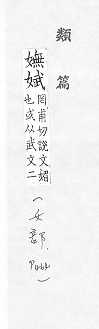 類篇
嫵娬罔甫切說文媚
也或从武文二
（女部．P.462）